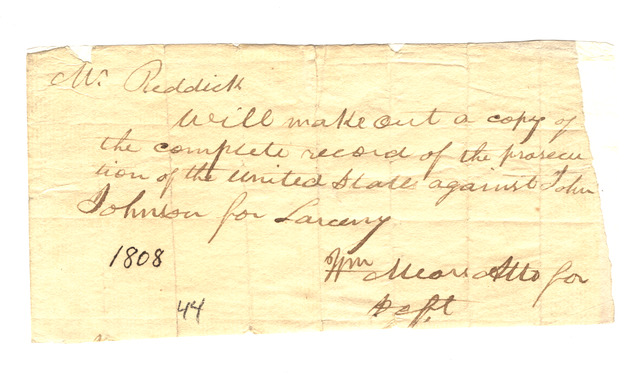 Mr. Reddick
Will make out a copy of
the complete record of the prosecu
tion of the United State against John
Johnson for Larceny
1808
Wm Mears Atto for
Deft
44